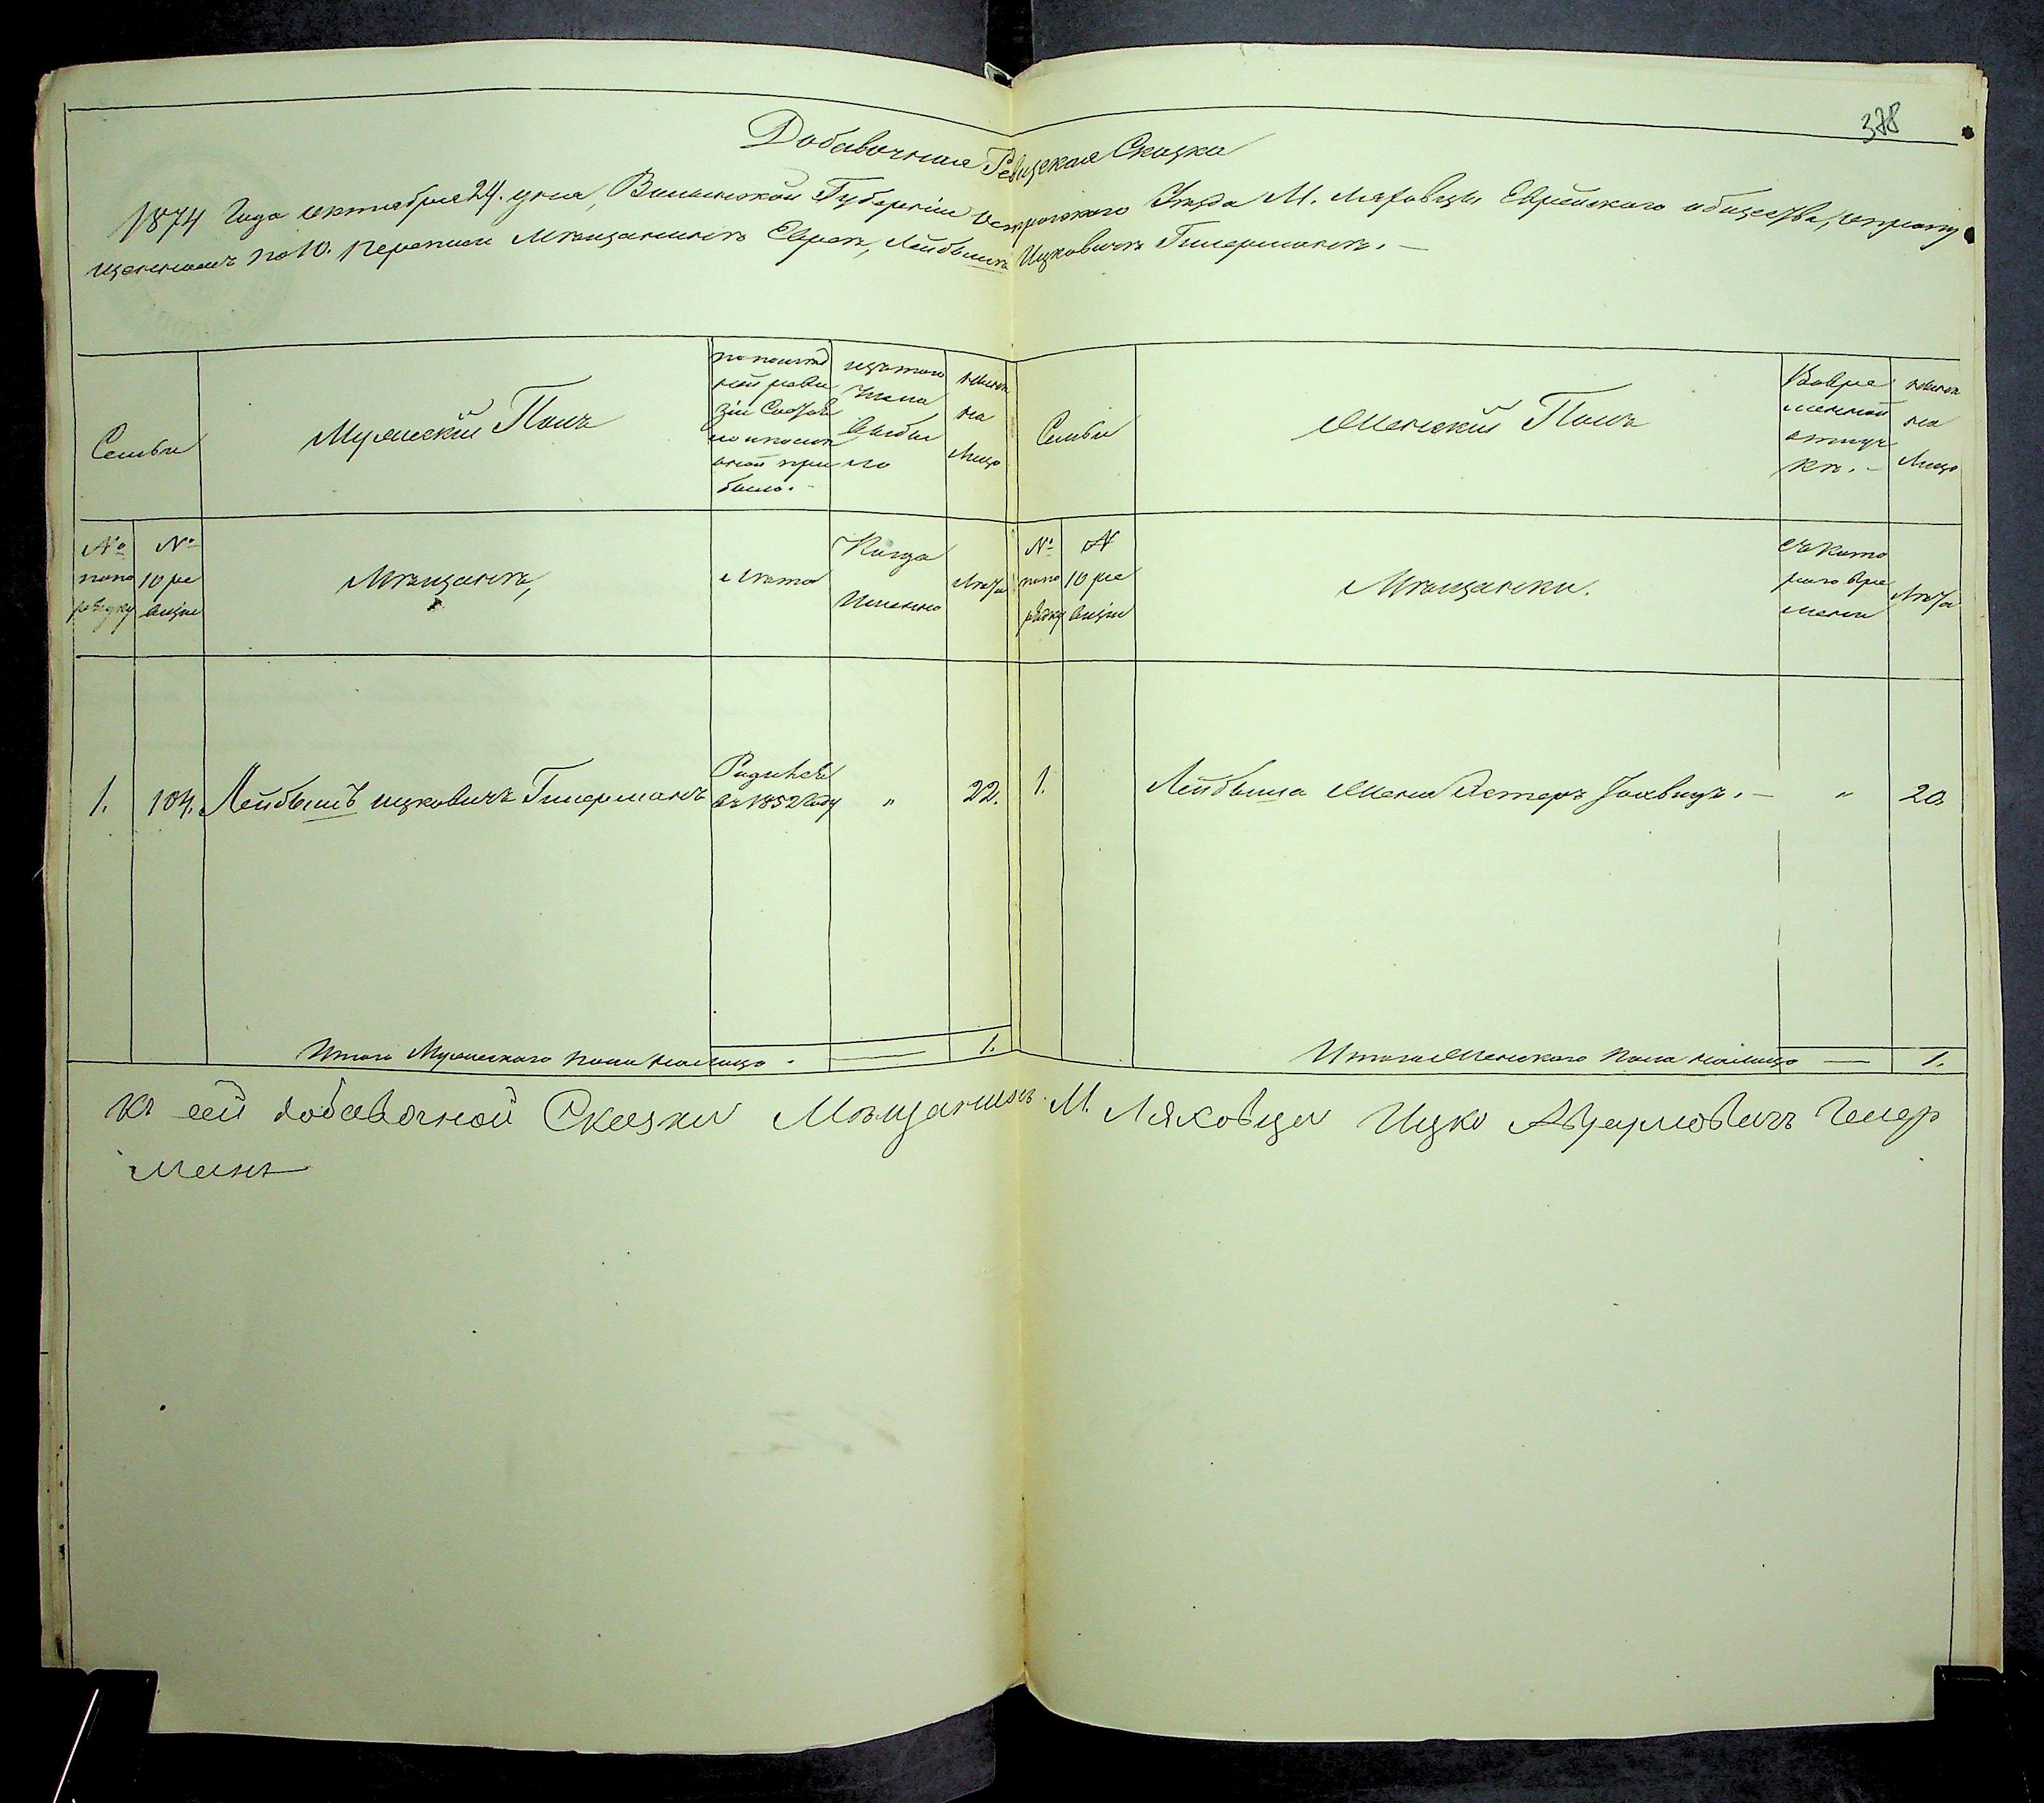 378
Добавочная Ревизская Сказка
1874 Года октября 24. дня, Волынской Губернии Острогского Уезда М. Ляховцы Еврейского общества, о пропу
щенномъ по 10. переписи мѣщанинѣ Евреѣ, Лейбышѣ Ицковичѣ Гитерманѣ. —
Семьи
Мужескій Полъ
по послѣд
ней реви
зіи Состоя
ло и после
оной при
было. —
изъ того
числа
выбы
ло
нынѣ
на
Лицо
Семьи
Женскій Полъ
Вовре
менной
отлуч
кѣ. —
нынѣ
на
Лицо
№
по по
рядку
№
10 ре
визіи
Мѣщанѣ,
Лѣта
Когда
Именно
Лѣта
№
по по
рядку
№
10 ре
визіи
Мѣщанки.
Съ кото
раго вре
мени
Лѣта
1.
104.
Лейбышъ Ицковичъ Гитерманъ
Родився
въ 1852 Году
"
22.
1.
Лейбыша Жена Эстеръ
"
20.
Итого Мужескаго пола налицо. —
1.
Итого Женскаго пола налицо —
1.
Къ сей добавочной Сказки Мѣщанинъ М. Ляховцы Ицко Гитер
манъ